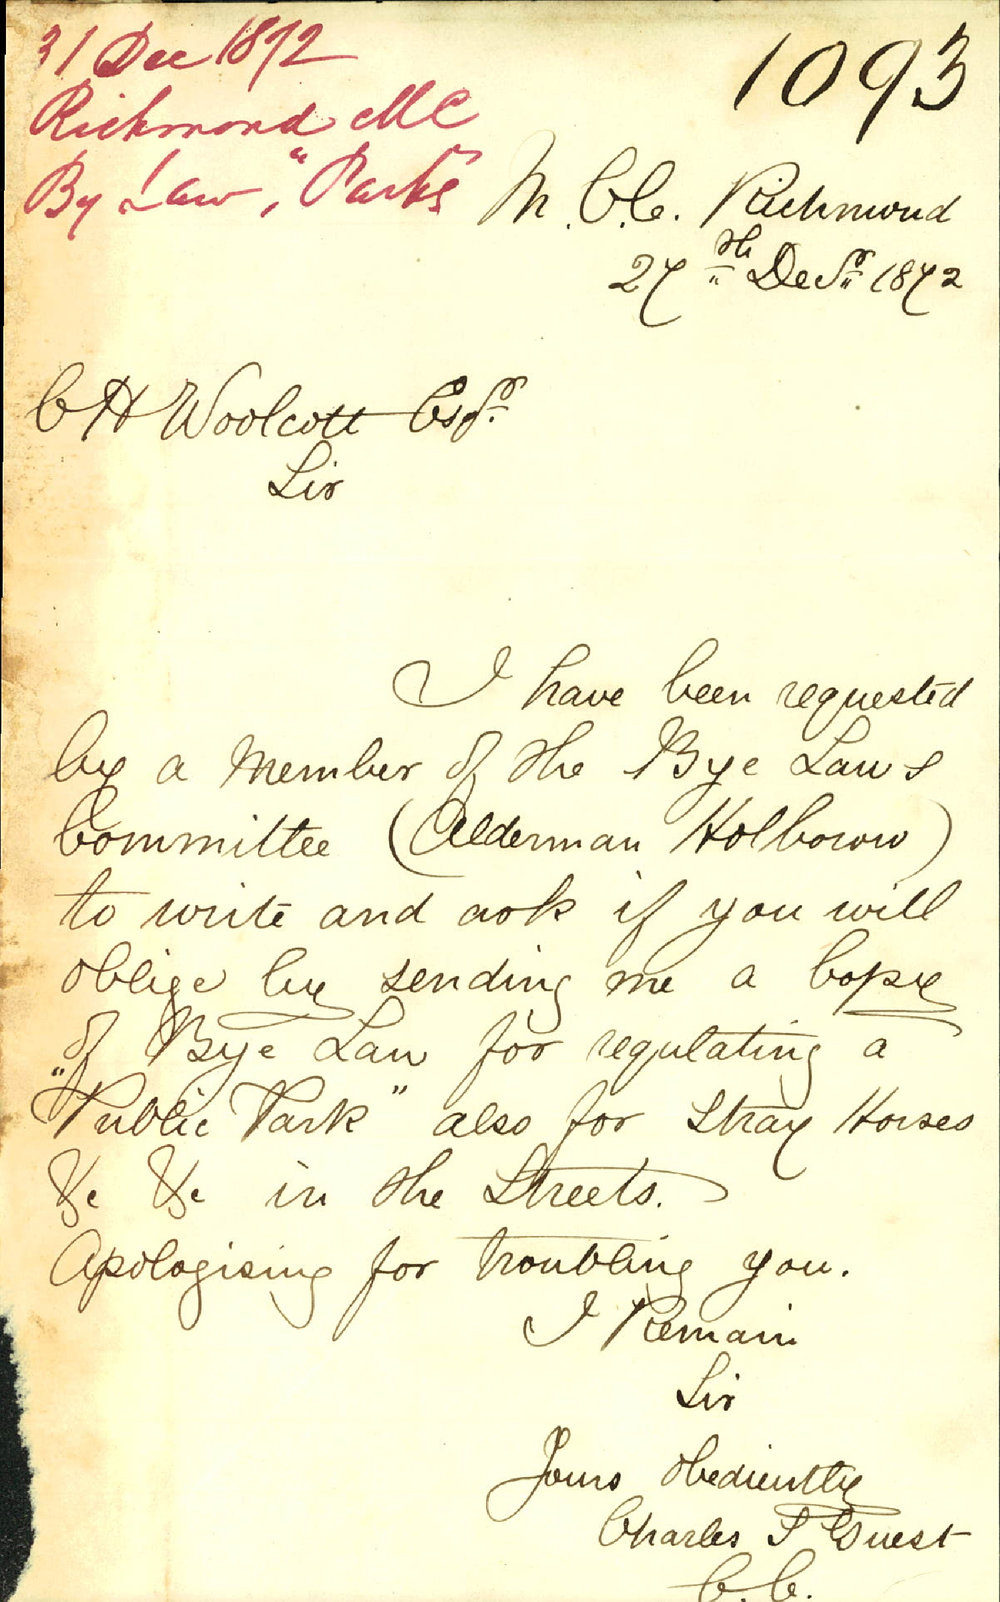 31 Dec 1872
Richmond MC
By Law, "Parks"
1093
M.C.C. Richmond
27th Decr 1872
C H Woolcott Esqr.
Sir
I have been requested
by a Member of the Bye Laws
Committee (Alderman Holborow)
to write and ask if you will
oblige by sending me a Copy
of Bye Law for regulating a
"Public Park" also for Stray Horses
&c &c in the Streets.
Apologising for troubling you.
I Remain
Sir
Yours Obediently
Charles S Guest
C.C.